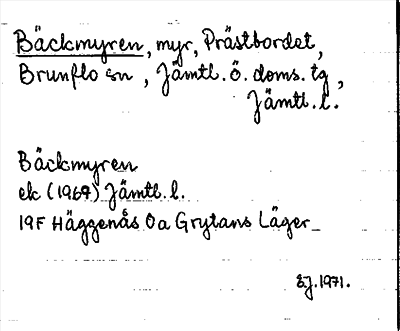 Bäckmyren, myr, Prästbordet,
Brunflo sn, Jämtl. ö. doms. tg,
Jämtl. l.
Bäckmyren
ek (1969) Jämtl. l.
19F Häggenås 0a Grytans Läger
EJ. 1971.